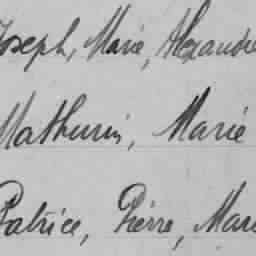 Joseph, Marie, Alexandre
Mathurin, Marie
Patrice, Pierre, Mari